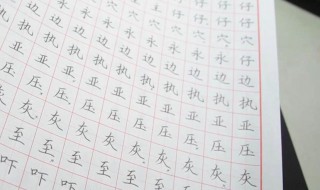 仔 仔 仔
穴 穴 穴 穴
永 永 永 永 永
边 边 边 边 边 边
执 执 执 执 执 执 执
亚 亚 亚 亚 亚 亚
压 压 压 压 压 压 压
灰 灰 灰 灰 灰 灰 灰
至 至 至 至 至
吓 吓 吓